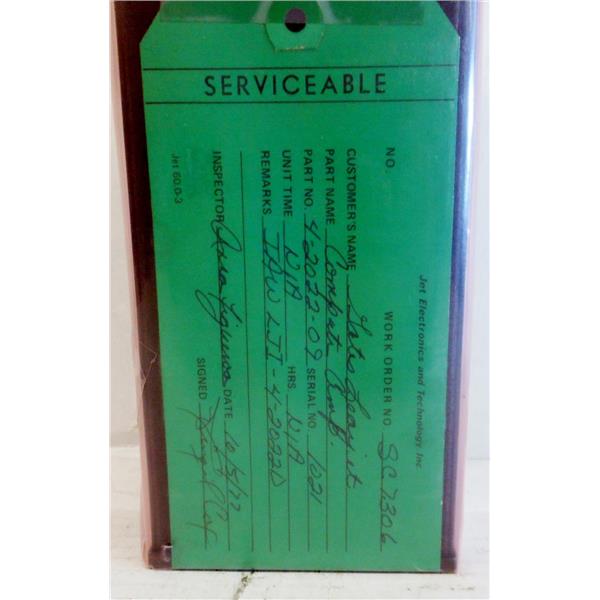 SERVICEABLE
Jet Electronics and Technology Inc.
NO. WORK ORDER NO. SC7306
CUSTOMER'S NAME Gates Learjet
PART NAME Computer Amp.
PART NO. 4-2022-09 SERIAL NO. 1021
UNIT TIME N/A HRS. N/A
REMARKS IAW LJI-4-2022D
INSPECTOR Figueroa DATE 10/5/77
SIGNED
Jet 60.0-3